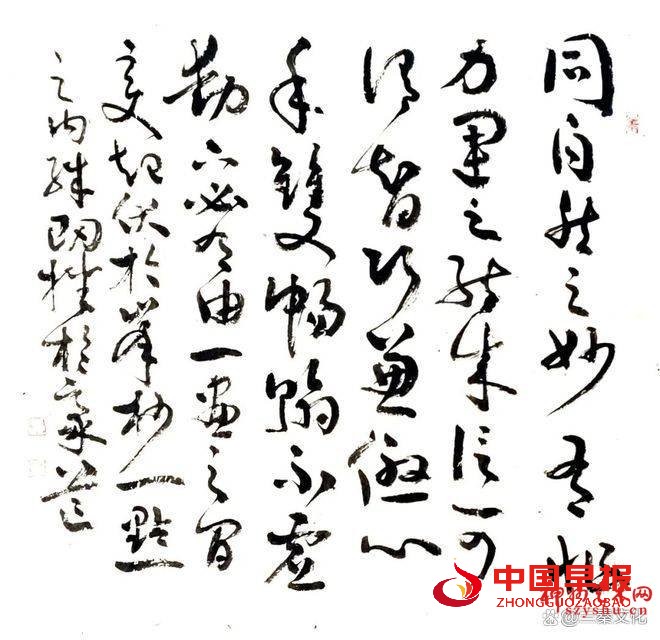 同自然之妙有非
力運之能成信可
謂智巧兼優心
手雙暢翰不虛
動下必有由一畫之間
變起伏於峯杪一點
之內殊衄挫於豪芒
中国早报
ZHONGGUOZAOBAO
网
szyshu.cn
三秦文化